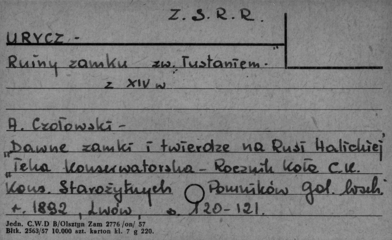 Z. S. R. R.
URYCZ -
Ruiny zamku zw. "Tustaniem"
z XIV w
A. Czołowski -
"Dawne zamki i twierdze na Rusi Halickiej
"Teka Konserwatorska - Rocznik Koła C.K.
Kons. Starożytnych Pomników gal. wsch.
t. 1892, Lwów, s. 120-121.
Jedn. C.W.D B/Olsztyn Zam 2776/on/ 57
Bltk. 2563/57 10.000 szt. karton kl. 7 g 220.